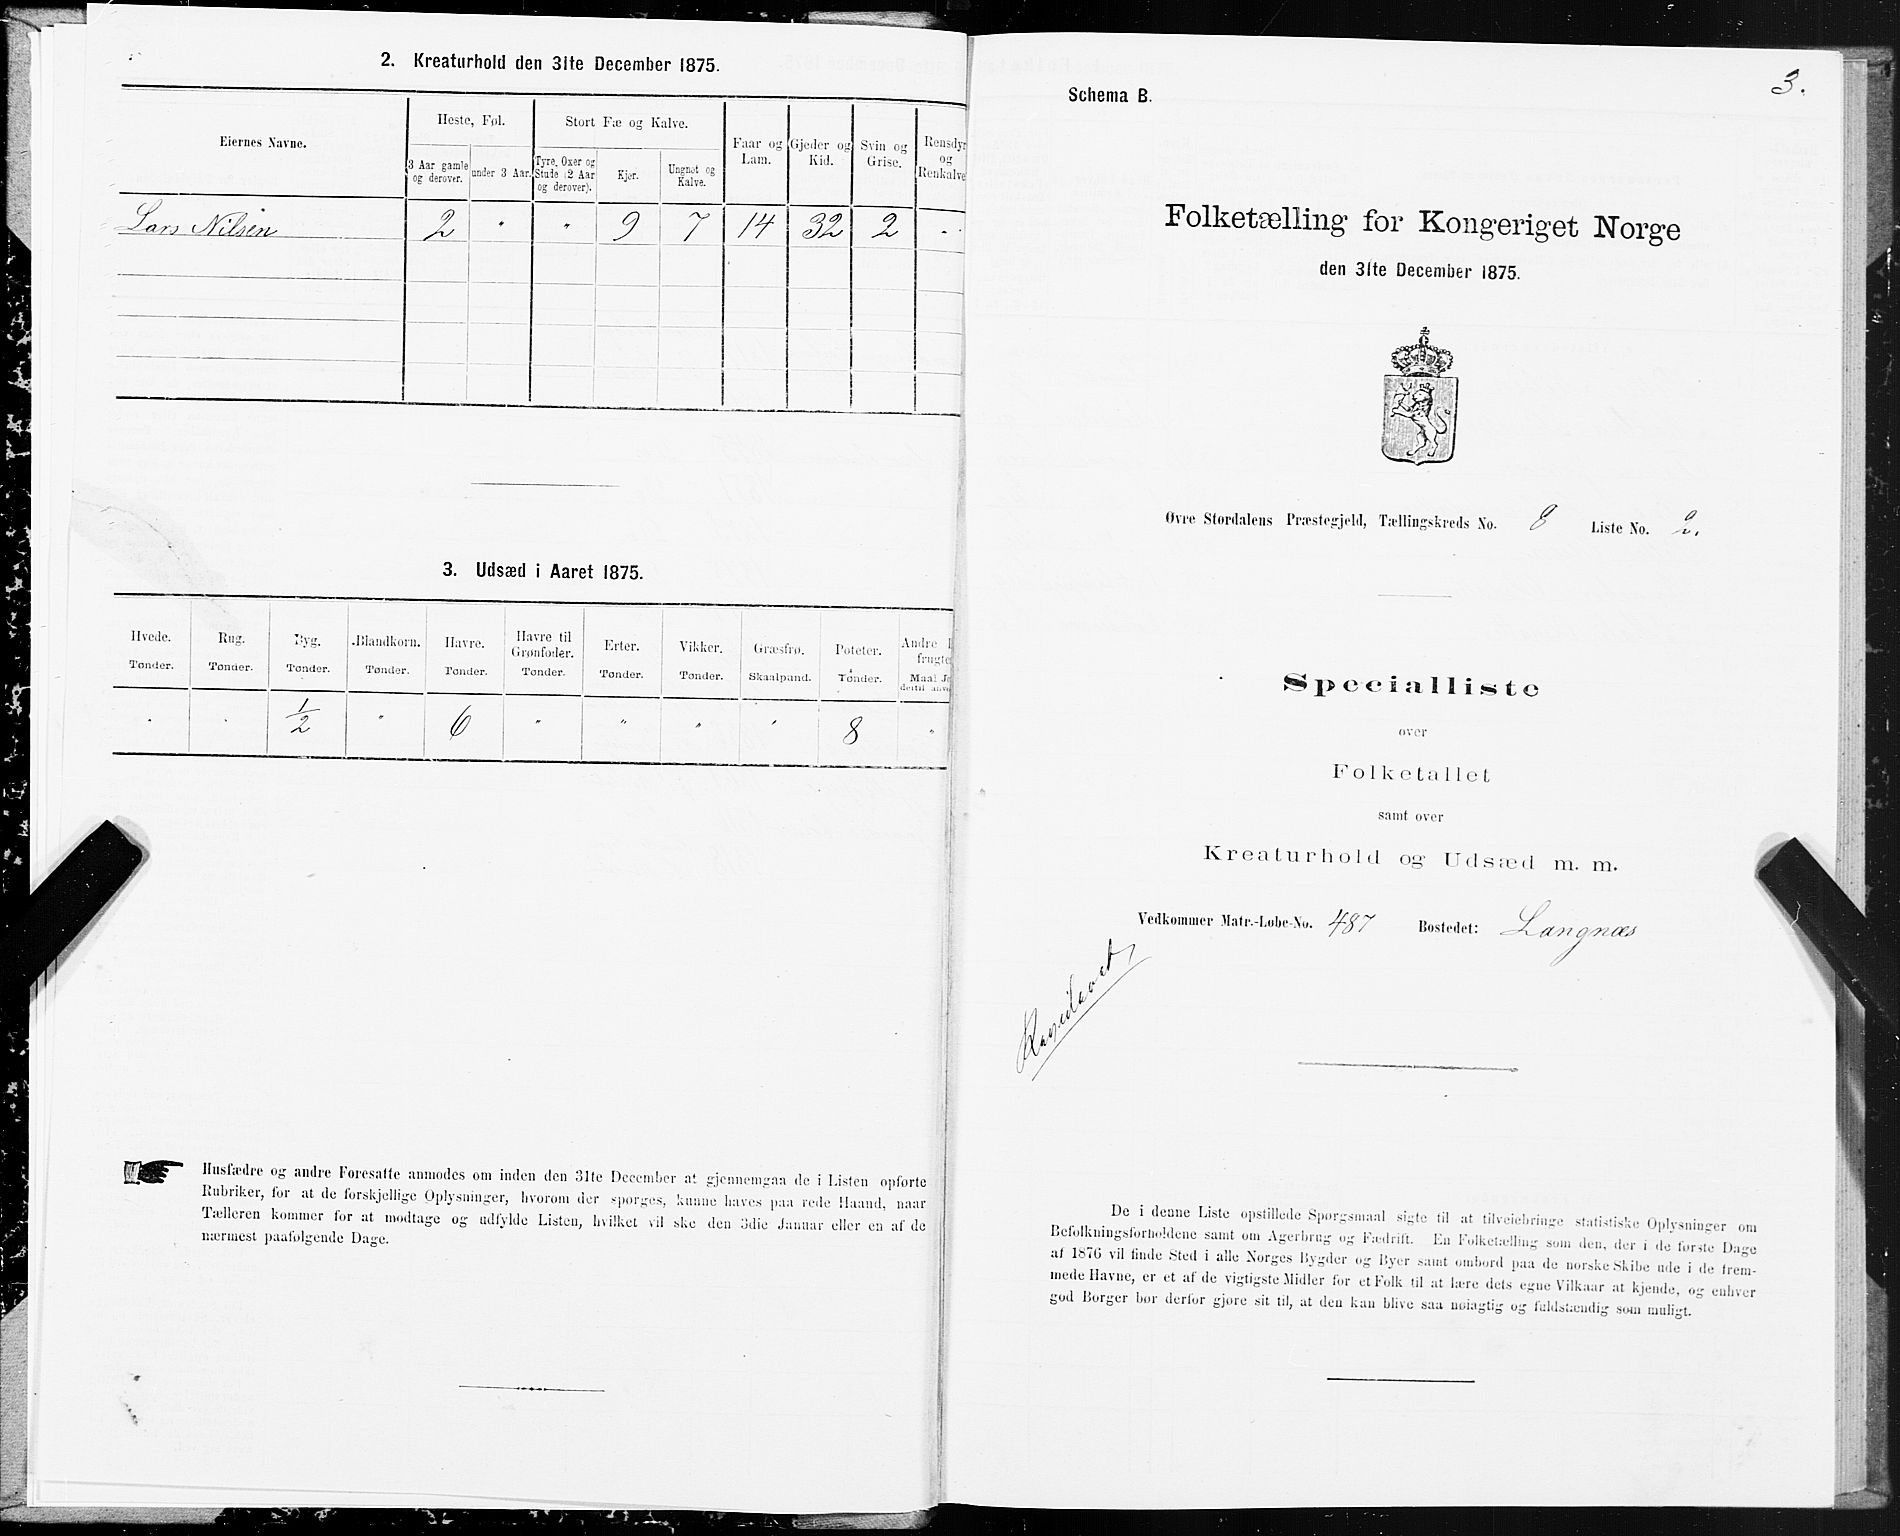 2. Kreaturhold den 31te December 1875.
Eiernes Navne.
Heste, Føl.
Stort Fæ og Kalve.
Faar og Lam.
Gjeder og Kid.
Svin og Grise.
Rensdyr og Renkalve
3 Aar gamle og derover.
under 3 Aar.
Tyre, Oxer og Stude (2 Aar og derover).
Kjør.
Ungnøt og Kalve.
Lars Nilsen 2 " " 9 7 14 32 2 -
3. Udsæd i Aaret 1875.
Hvede. Rug. Byg. Blandkorn. Havre. Havre til Grønfoder. Erter. Vikker. Græsfrø. Poteter. Andre
frugte
Tønder. Tønder. Tønder. Tønder. Tønder. Tønder. Tønder. Tønder. Skaalpund. Tønder. Maal
" " 1/2 " 6 " " " " 8 "
Husfædre og andre Foresatte anmodes om inden den 31te December at gjennemgaa de i Listen opførte
Rubriker, for at de forskjellige Oplysninger, hvorom der spørges, kunne haves paa rede Haand, naar
Tælleren kommer for at modtage og udfylde Listen, hvilket vil ske den 3die Januar eller en af de
nærmest paafølgende Dage.
3.
Schema B.
Folketælling for Kongeriget Norge
den 31te December 1875.
Øvre Stordalens Præstegjeld, Tællingskreds No. 8 Liste No. 2.
Specialliste
over
Folketallet
samt over
Kreaturhold og Udsæd m. m.
Vedkommer Matr.-Løbe-No. 487 Bostedet: Langnæs
De i denne Liste opstillede Spørgsmaal sigte til at tilveiebringe statistiske Oplysninger om
Befolkningsforholdene samt om Agerbrug og Fædrift. En Folketælling som den, der i de første Dage
af 1876 vil finde Sted i alle Norges Bygder og Byer samt ombord paa de norske Skibe ude i de frem-
mede Havne, er et af de vigtigste Midler for et Folk til at lære dets egne Vilkaar at kjende, og enhver
god Borger bør derfor gjøre sit til, at den kan blive saa nøiagtig og fuldstændig som muligt.